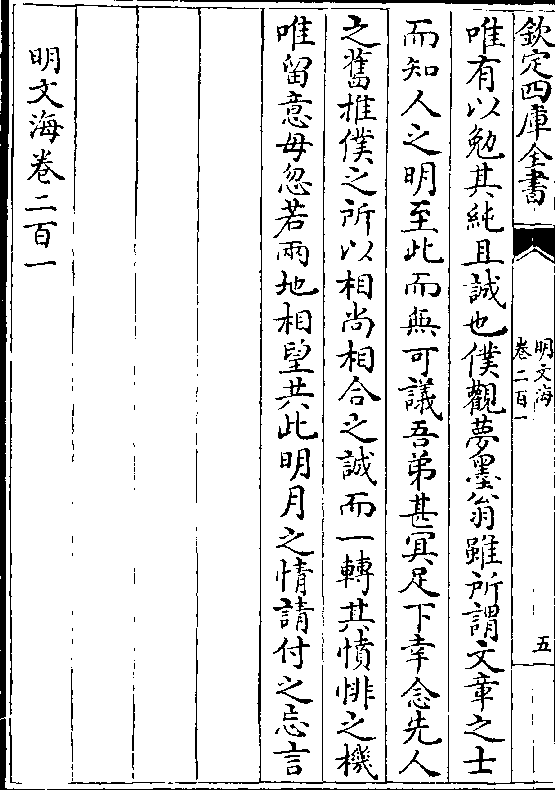 欽定四庫全書
明文海
卷二百一
五
唯有以勉其純且誠也僕觀夢墨翁雖所謂文章之士
而知人之明至此而無可議吾弟甚寘足下幸念先人
之舊推僕之所以相尚相合之誠而一轉其憤悱之機
唯留意毋忽若兩地相望共此明月之情請付之忘言
明文海卷二百一